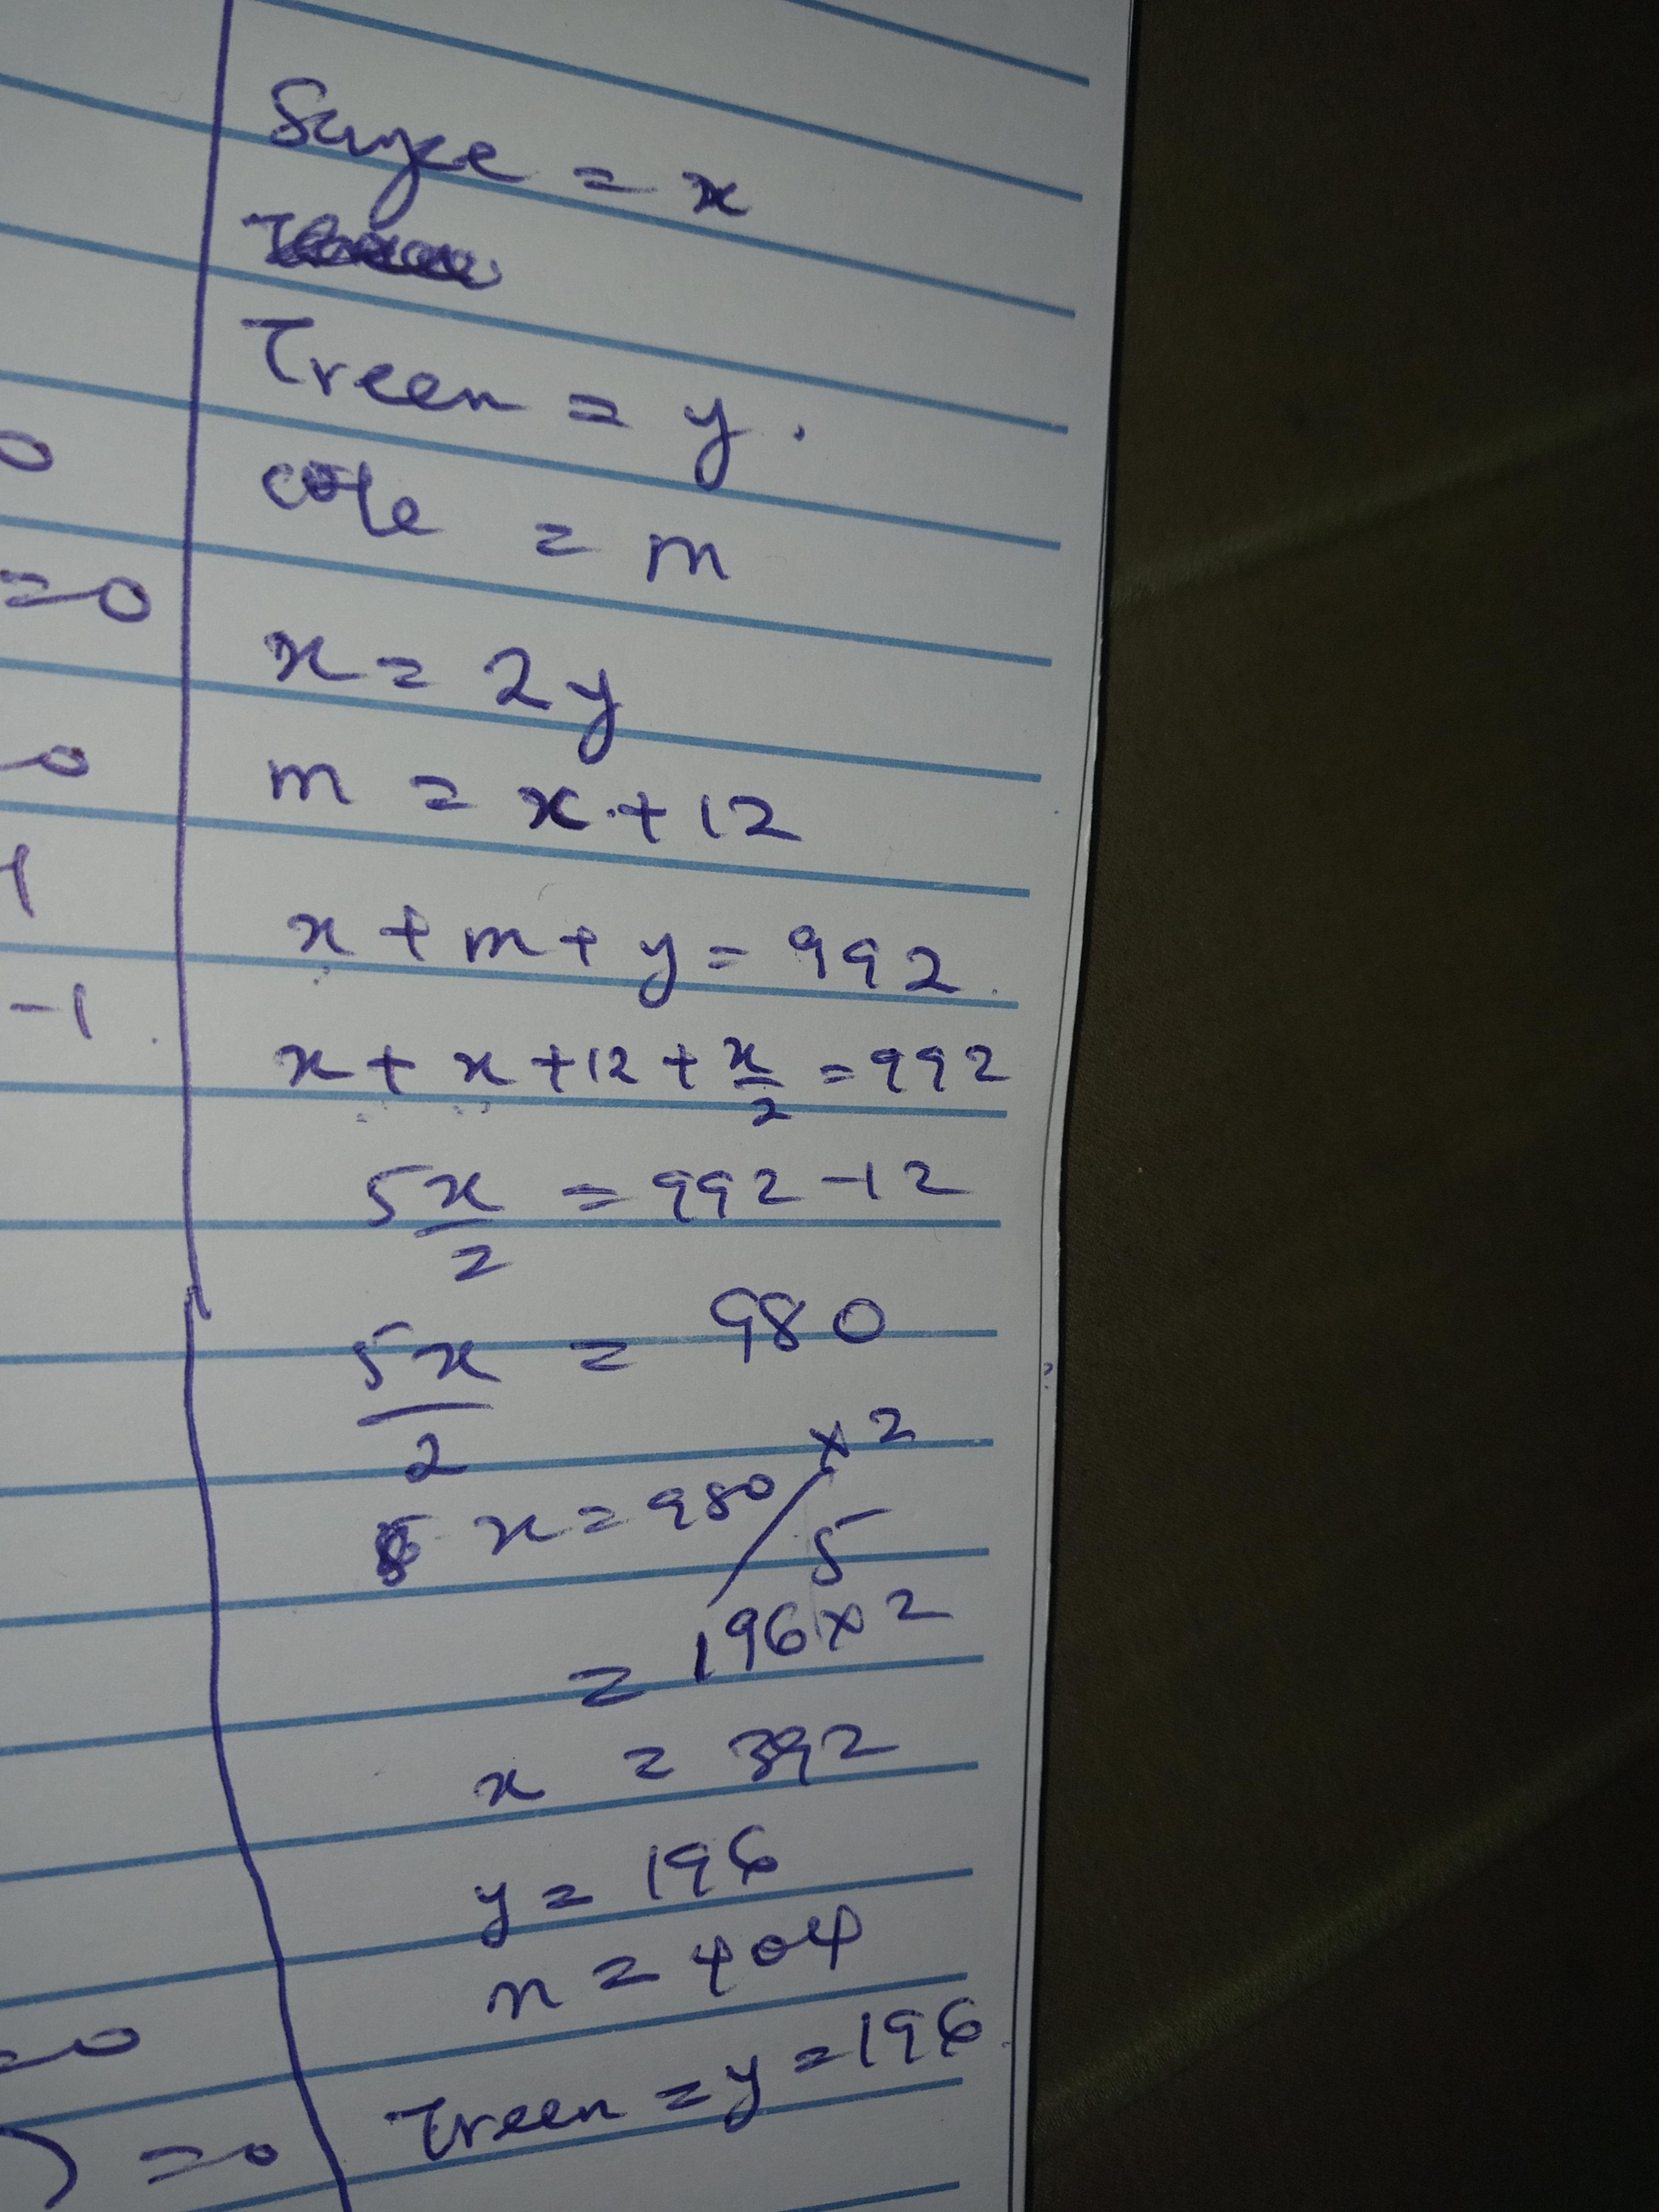 0
=0
0
1
-1
=0
) =0
Sayce = x
Treen = y.
cole = m
x = 2y
m = x + 12
x + m + y = 992
x + x + 12 + x/2 = 992
5x/2 = 992 - 12
5x/2 = 980
x = 980 x 2 / 5
= 196 x 2
x = 392
y = 196
m = 404
Treen = y = 196